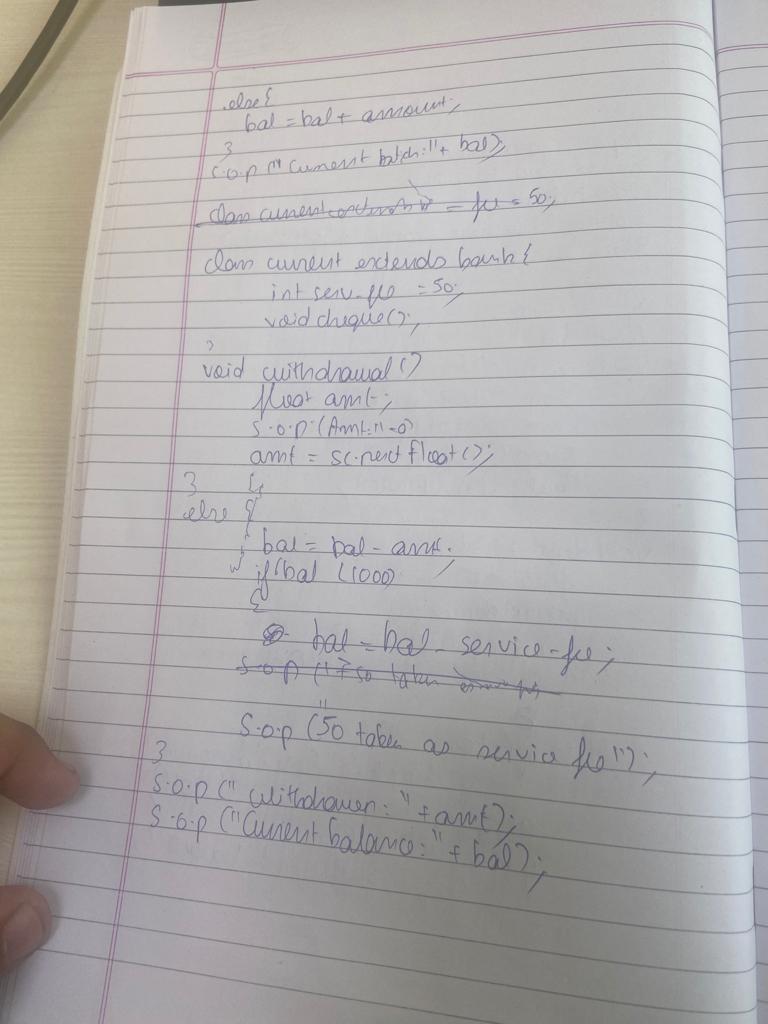 else{
bal = bal + amount;
}
S.o.p (" Current batch:"+ bal);
class current = fee = 50;
class current extends bank {
int serv_fee = 50;
void cheque();
}
void withdrawal ()
float amt;
S.o.p.(Amt:"-0)
amt = sc.next float();
}
else {
bal = bal - amt;
if (bal <1000)
{
bal = bal - service-fee;
S.o.p ("50 taken
S.o.p ("50 taken as service fee");
}
S.o.p (" withdrawen: " +amt);
S.o.p ("Current balance:" + bal);